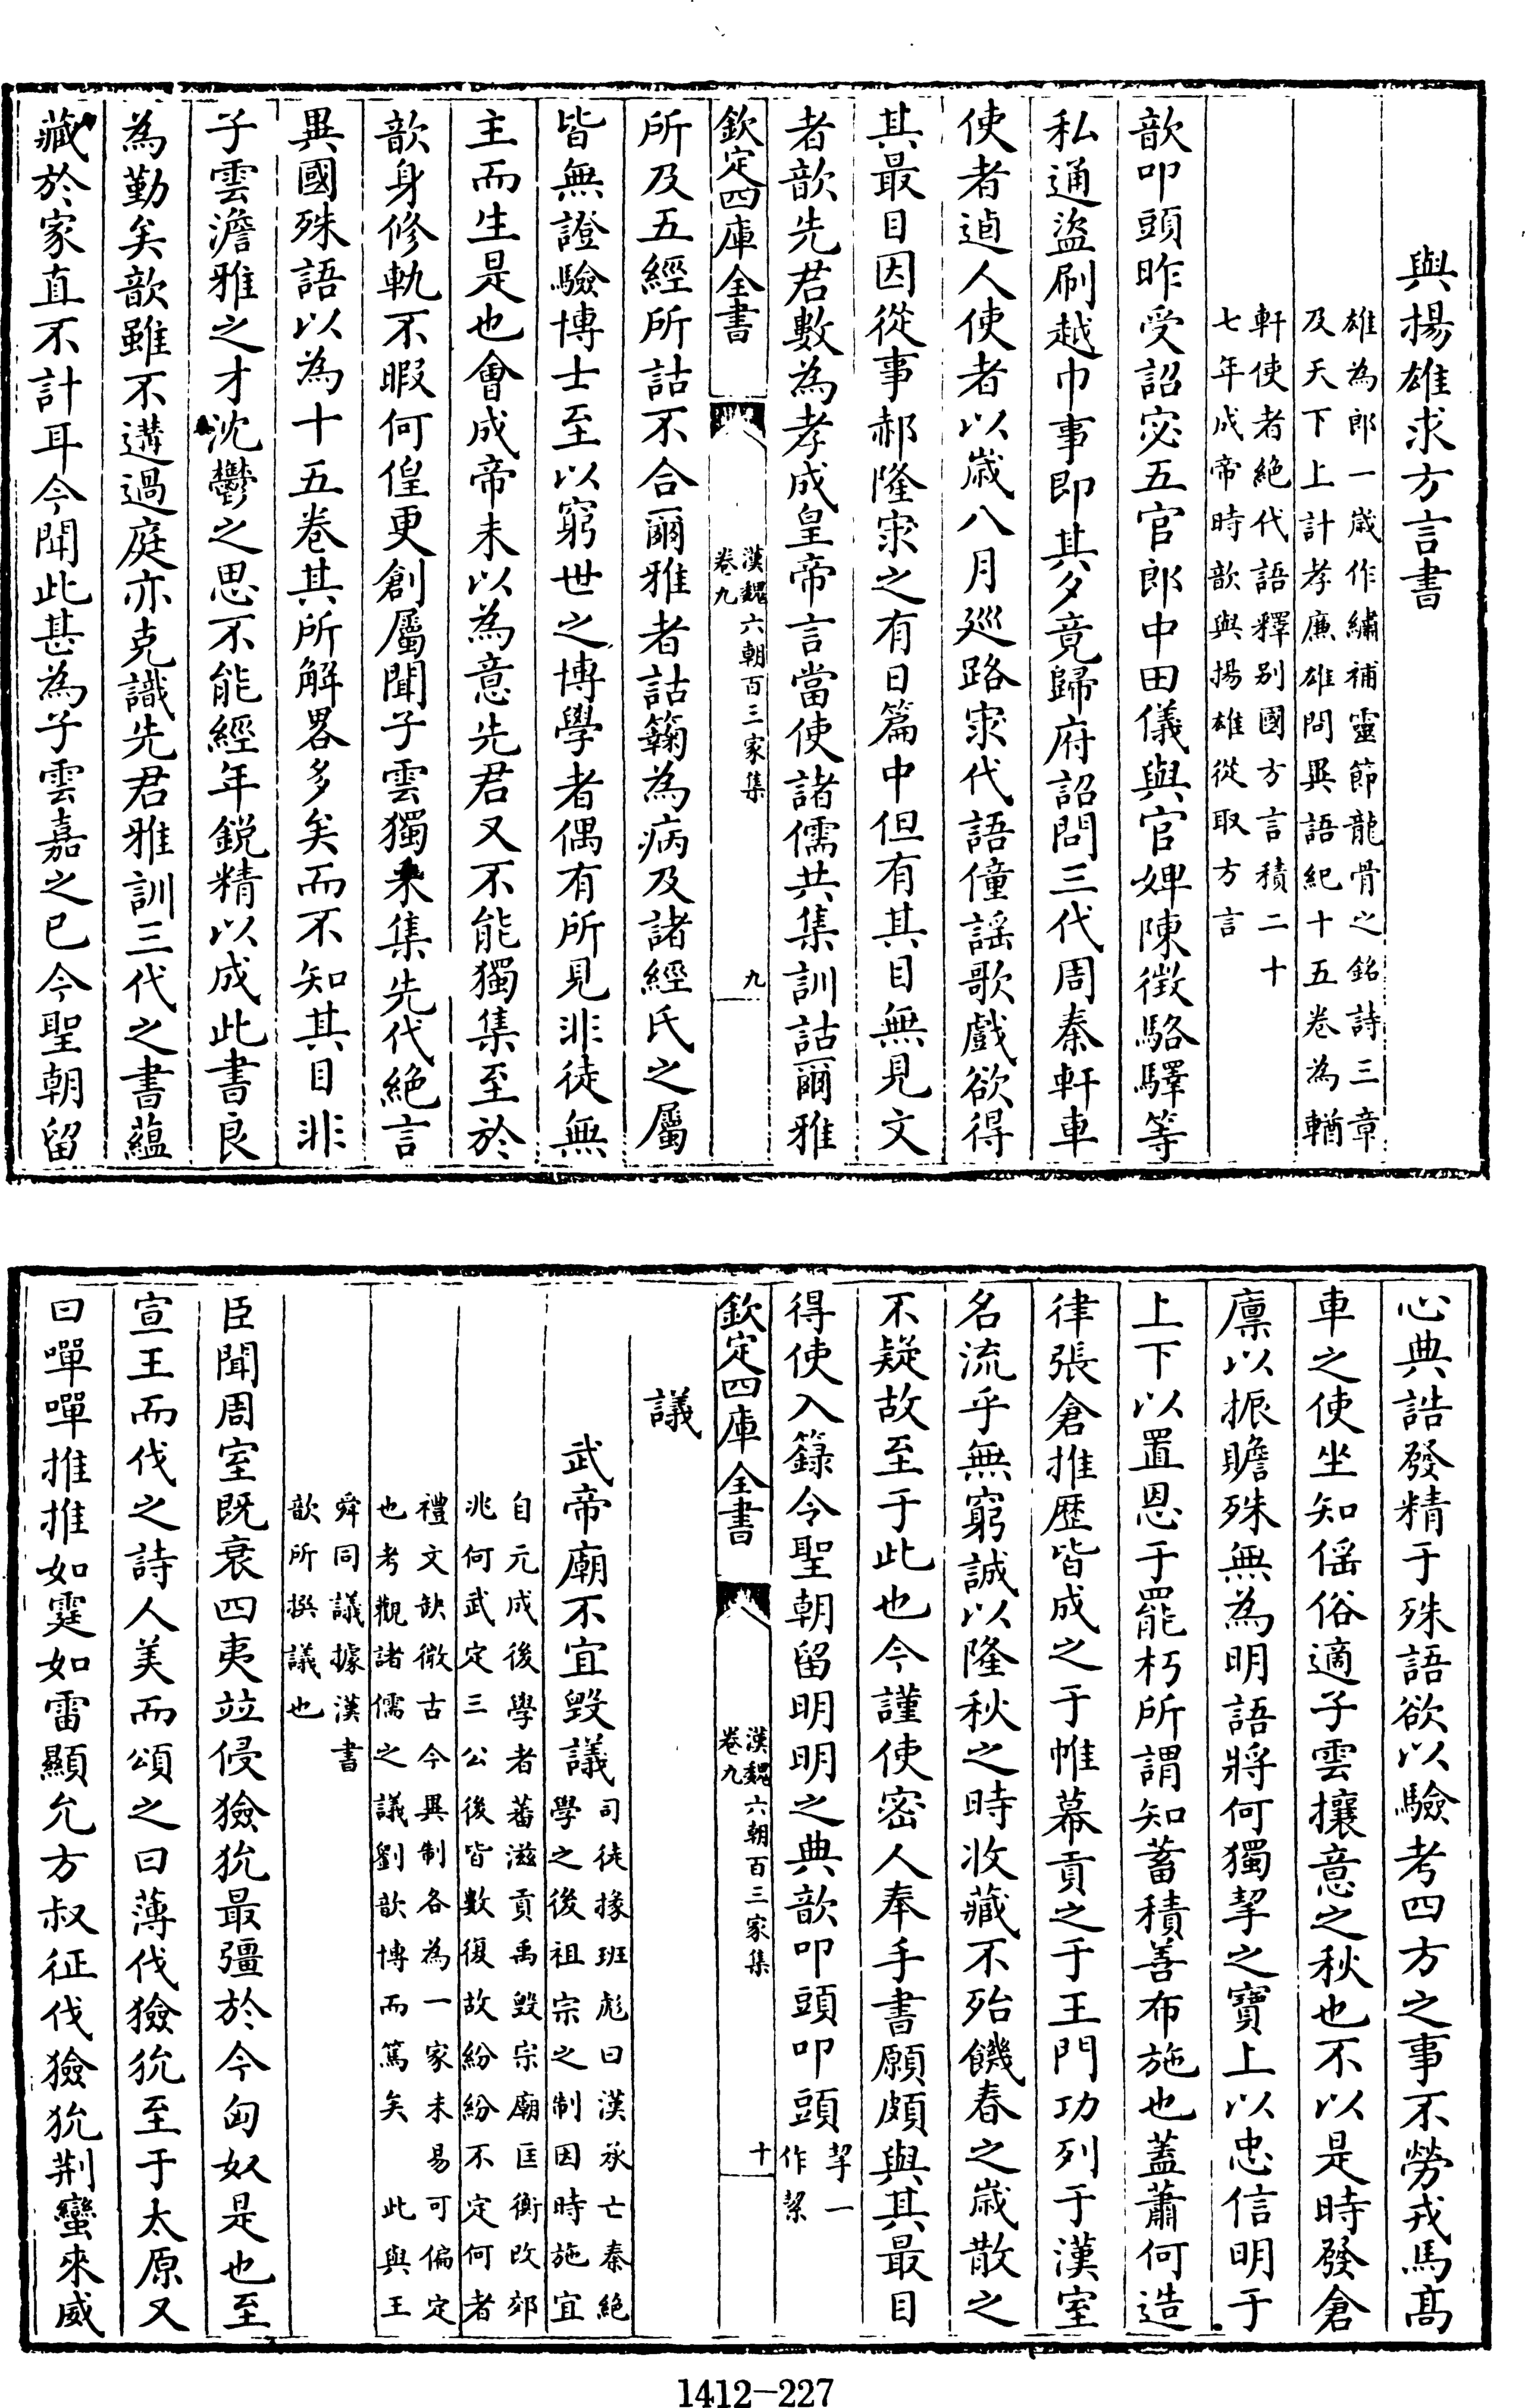 與揚雄求方言書
雄為郎一歳作繡補靈節龍骨之銘詩三章
及天下上計孝廉雄問異語紀十五卷為輶
軒使者絶代語釋别國方言積二十
七年成帝時歆與揚雄從取方言
歆叩頭昨受詔宓五官郎中田儀與官婢陳徴駱驛等
私通盗刷越巾事即其夕竟歸府詔問三代周秦軒車
使者逌人使者以歳八月廵路宷代語僮謡歌戲欲得
其最目因從事郝隆宷之有日篇中但有其目無見文
者歆先君數為孝成皇帝言當使諸儒共集訓詁爾雅
欽定四庫全書
漢魏六朝百三家集
卷九
九
所及五經所詁不合爾雅者詁籟為病及諸經氏之屬
皆無證驗博士至以窮世之博學者偶有所見非徒無
主而生是也㑹成帝未以為意先君又不能獨集至於
歆身修軌不暇何偟更創屬聞子雲獨采集先代絶言
異國殊語以為十五卷其所解畧多矣而不知其目非
子雲澹雅之才沈鬱之思不能經年鋭精以成此書良
為勤矣歆雖不遘過庭亦克識先君雅訓三代之書藴
藏於家直不計耳今聞此甚為子雲嘉之已今聖朝留
心典誥發精于殊語欲以驗考四方之事不勞戎馬髙
車之使坐知傜俗適子雲攘意之秋也不以是時發倉
廪以振贍殊無為明語將何獨挈之寶上以忠信明于
上下以置恩于罷朽所謂知蓄積善布施也蓋蕭何造
律張倉推歴皆成之于帷幕貢之于王門功列于漢室
名流乎無窮誠以隆秋之時收藏不殆饑春之歳散之
不疑故至于此也今謹使密人奉手書願頗與其最目
得使入籙令聖朝留明明之典歆叩頭叩頭
挈一
作絜
欽定四庫全書
漢魏六朝百三家集
卷九
十
議
武帝廟不宜毁議
司徒掾班彪曰漢承亡秦絶
學之後祖宗之制因時施宜
自元成後學者蕃滋貢禹毁宗廟匡衡改郊
兆何武定三公後皆數復故紛紛不定何者
禮文缺微古今異制各為一家未易可偏定
也考觀諸儒之議劉歆博而篤矣 此與王
舜同議據漢書
歆所撰議也
臣聞周室既衰四夷竝侵獫狁最彊於今匈奴是也至
宣王而伐之詩人美而頌之曰薄伐獫狁至于太原又
曰嘽嘽推推如霆如雷顯允方叔征伐獫狁荆蠻來威
1412—227